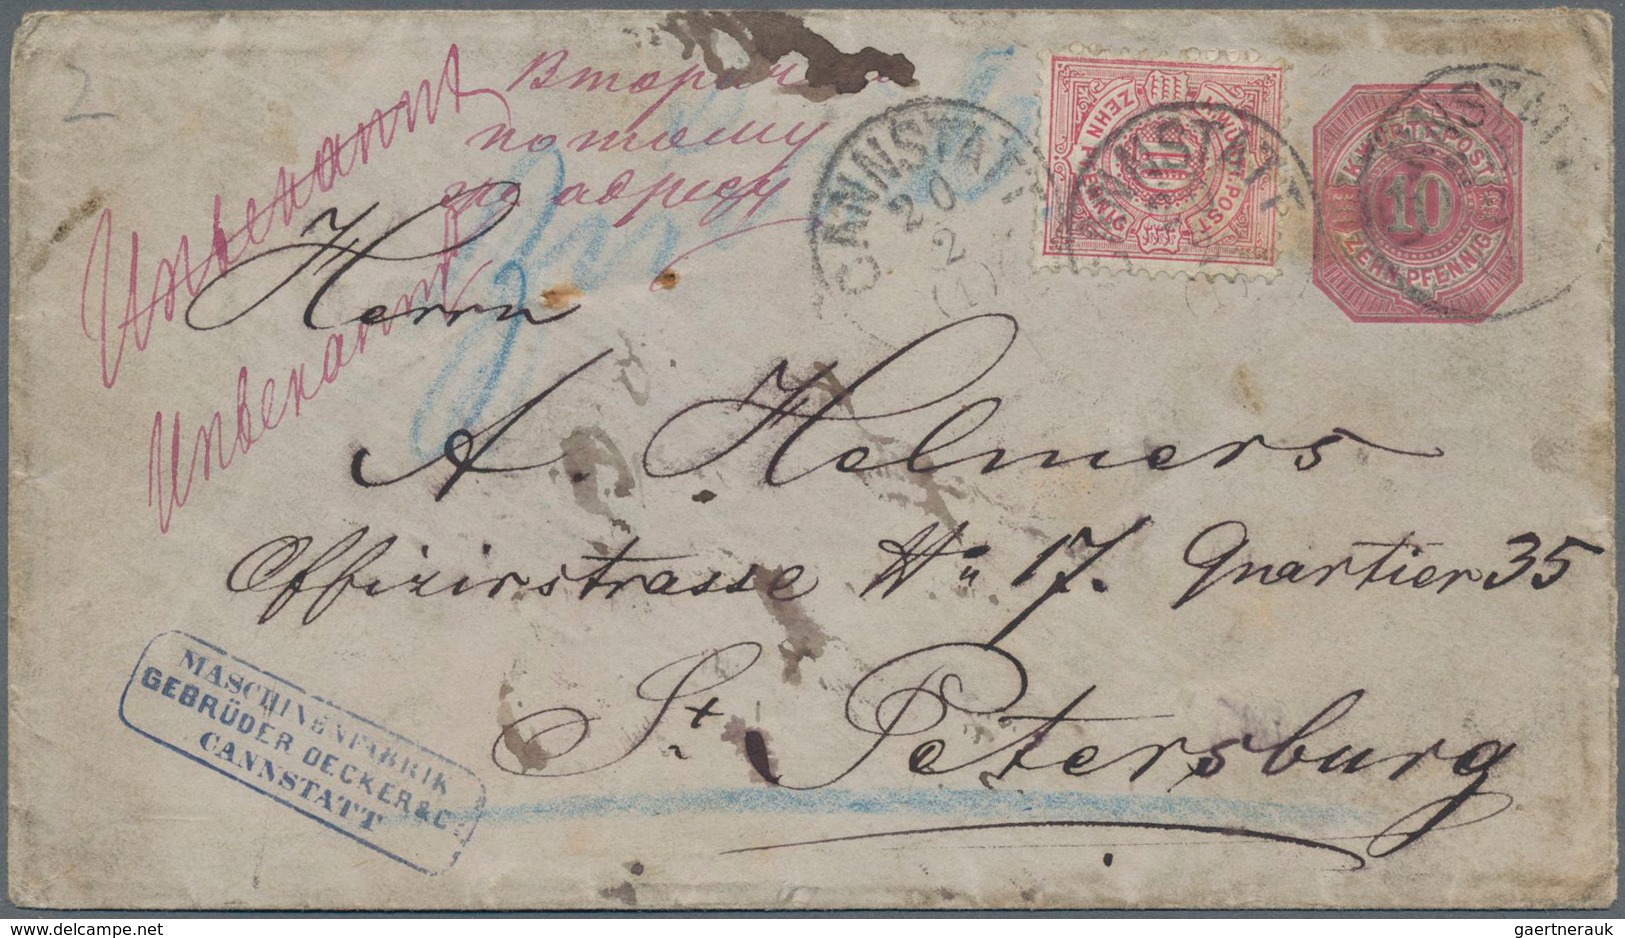 2
Unbekannt
Unbekannt
Вторично
потому
же адресу
CANNSTATT
20
2
(1)
K.WÜRT.POST
ZEHN PFENNIG
10
CANNSTATT
K.WÜRT.POST
10
ZEHN PFENNIG
Herrn
A. Helmers
Offizirstrasse No 17. Quartier 35
St. Petersburg
MASCHINENFABRIK
GEBRÜDER DECKER & Co
CANNSTATT
delcampe.net
gaertnerauk